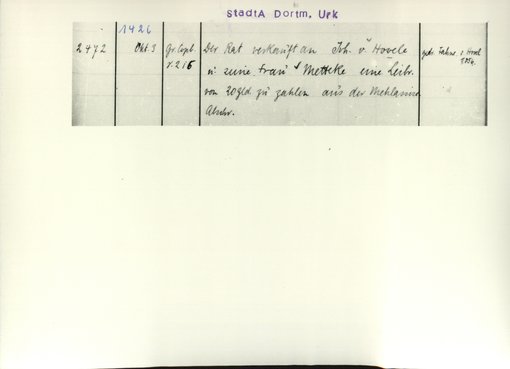 StadtA Dortm. Urk
1426
2472 Okt. 3 Gr. Copb. Der Rat verkauft an Joh. v. Hovele
v. 216 u. seine Frau Metteke eine Leibr.
von 20 Gld. zu zahlen aus der
Abschr.